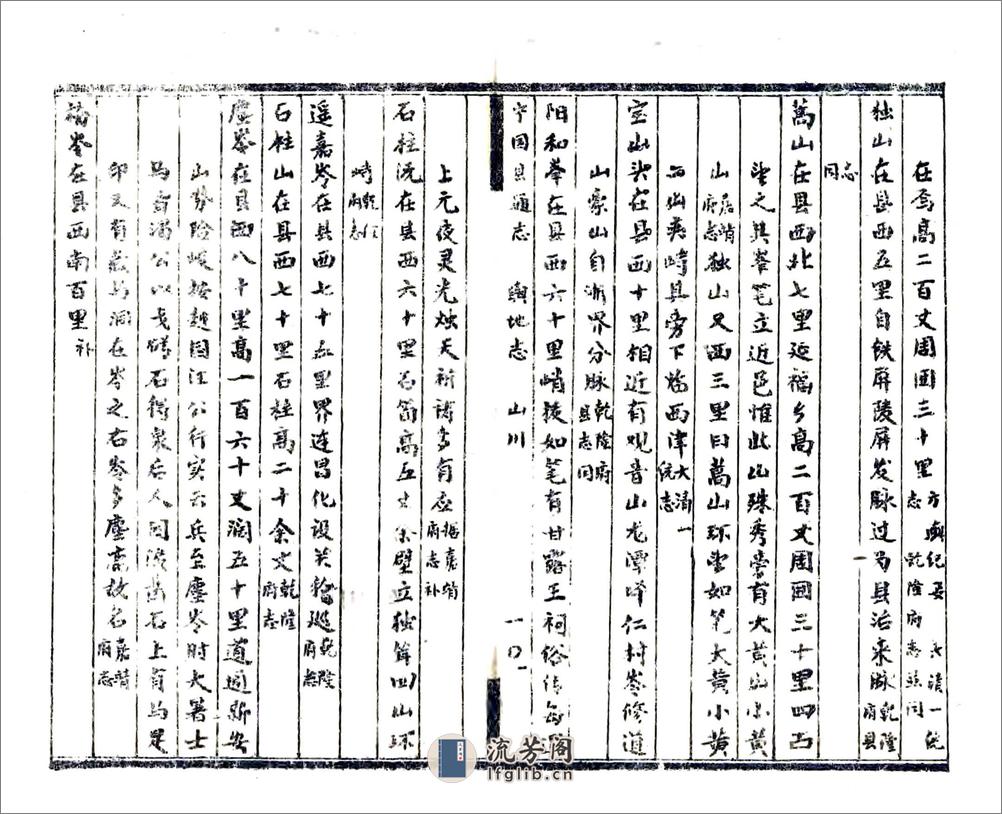 在焉高二百丈周围三十里方舆纪要 大清一统志乾隆府志縣同
独山在县西五里自铁屏陵屏发脉过为县治来脉乾隆府县
志同
萬山在县西北七里延福乡高二百丈周围三十里四占
望之其峯笔立近邑惟此山殊秀旁有大黄山小黄
山嘉靖府志独山又西三里曰萬山环望如笔大黄小黄
两山夹峙县旁下临西津大清一统志
宝山头在县西十里相近有观音山龙潭峰仁村岑修道
山豪山自浙界分脉乾隆府县志同
阳和峯在县西六十里峭拔如笔有甘露王祠俗传每
宁国县通志 舆地志 山川 一〇一
上元夜灵光烛天祈请多有应据嘉靖府志补
石柱沅在县西六十里石笥高五丈余壁立独耸四山环
峙乾隆府志
遥嘉岑在县西七十五里界连昌化设关稽巡乾隆府志
石柱山在县西七十里石柱高二十余丈乾隆府志
塵岑在县西八十里高一百六十丈润五十里道通新安
山势险峻按越国汪公行实云兵至塵岑时大暑士
马皆渴公以戈鐏石得泉后人因凌 石上有马足
印又有 马洞在岑之右岑多塵高故名嘉靖府志
岑在县西南百里补
流芳阁
lfglib.cn